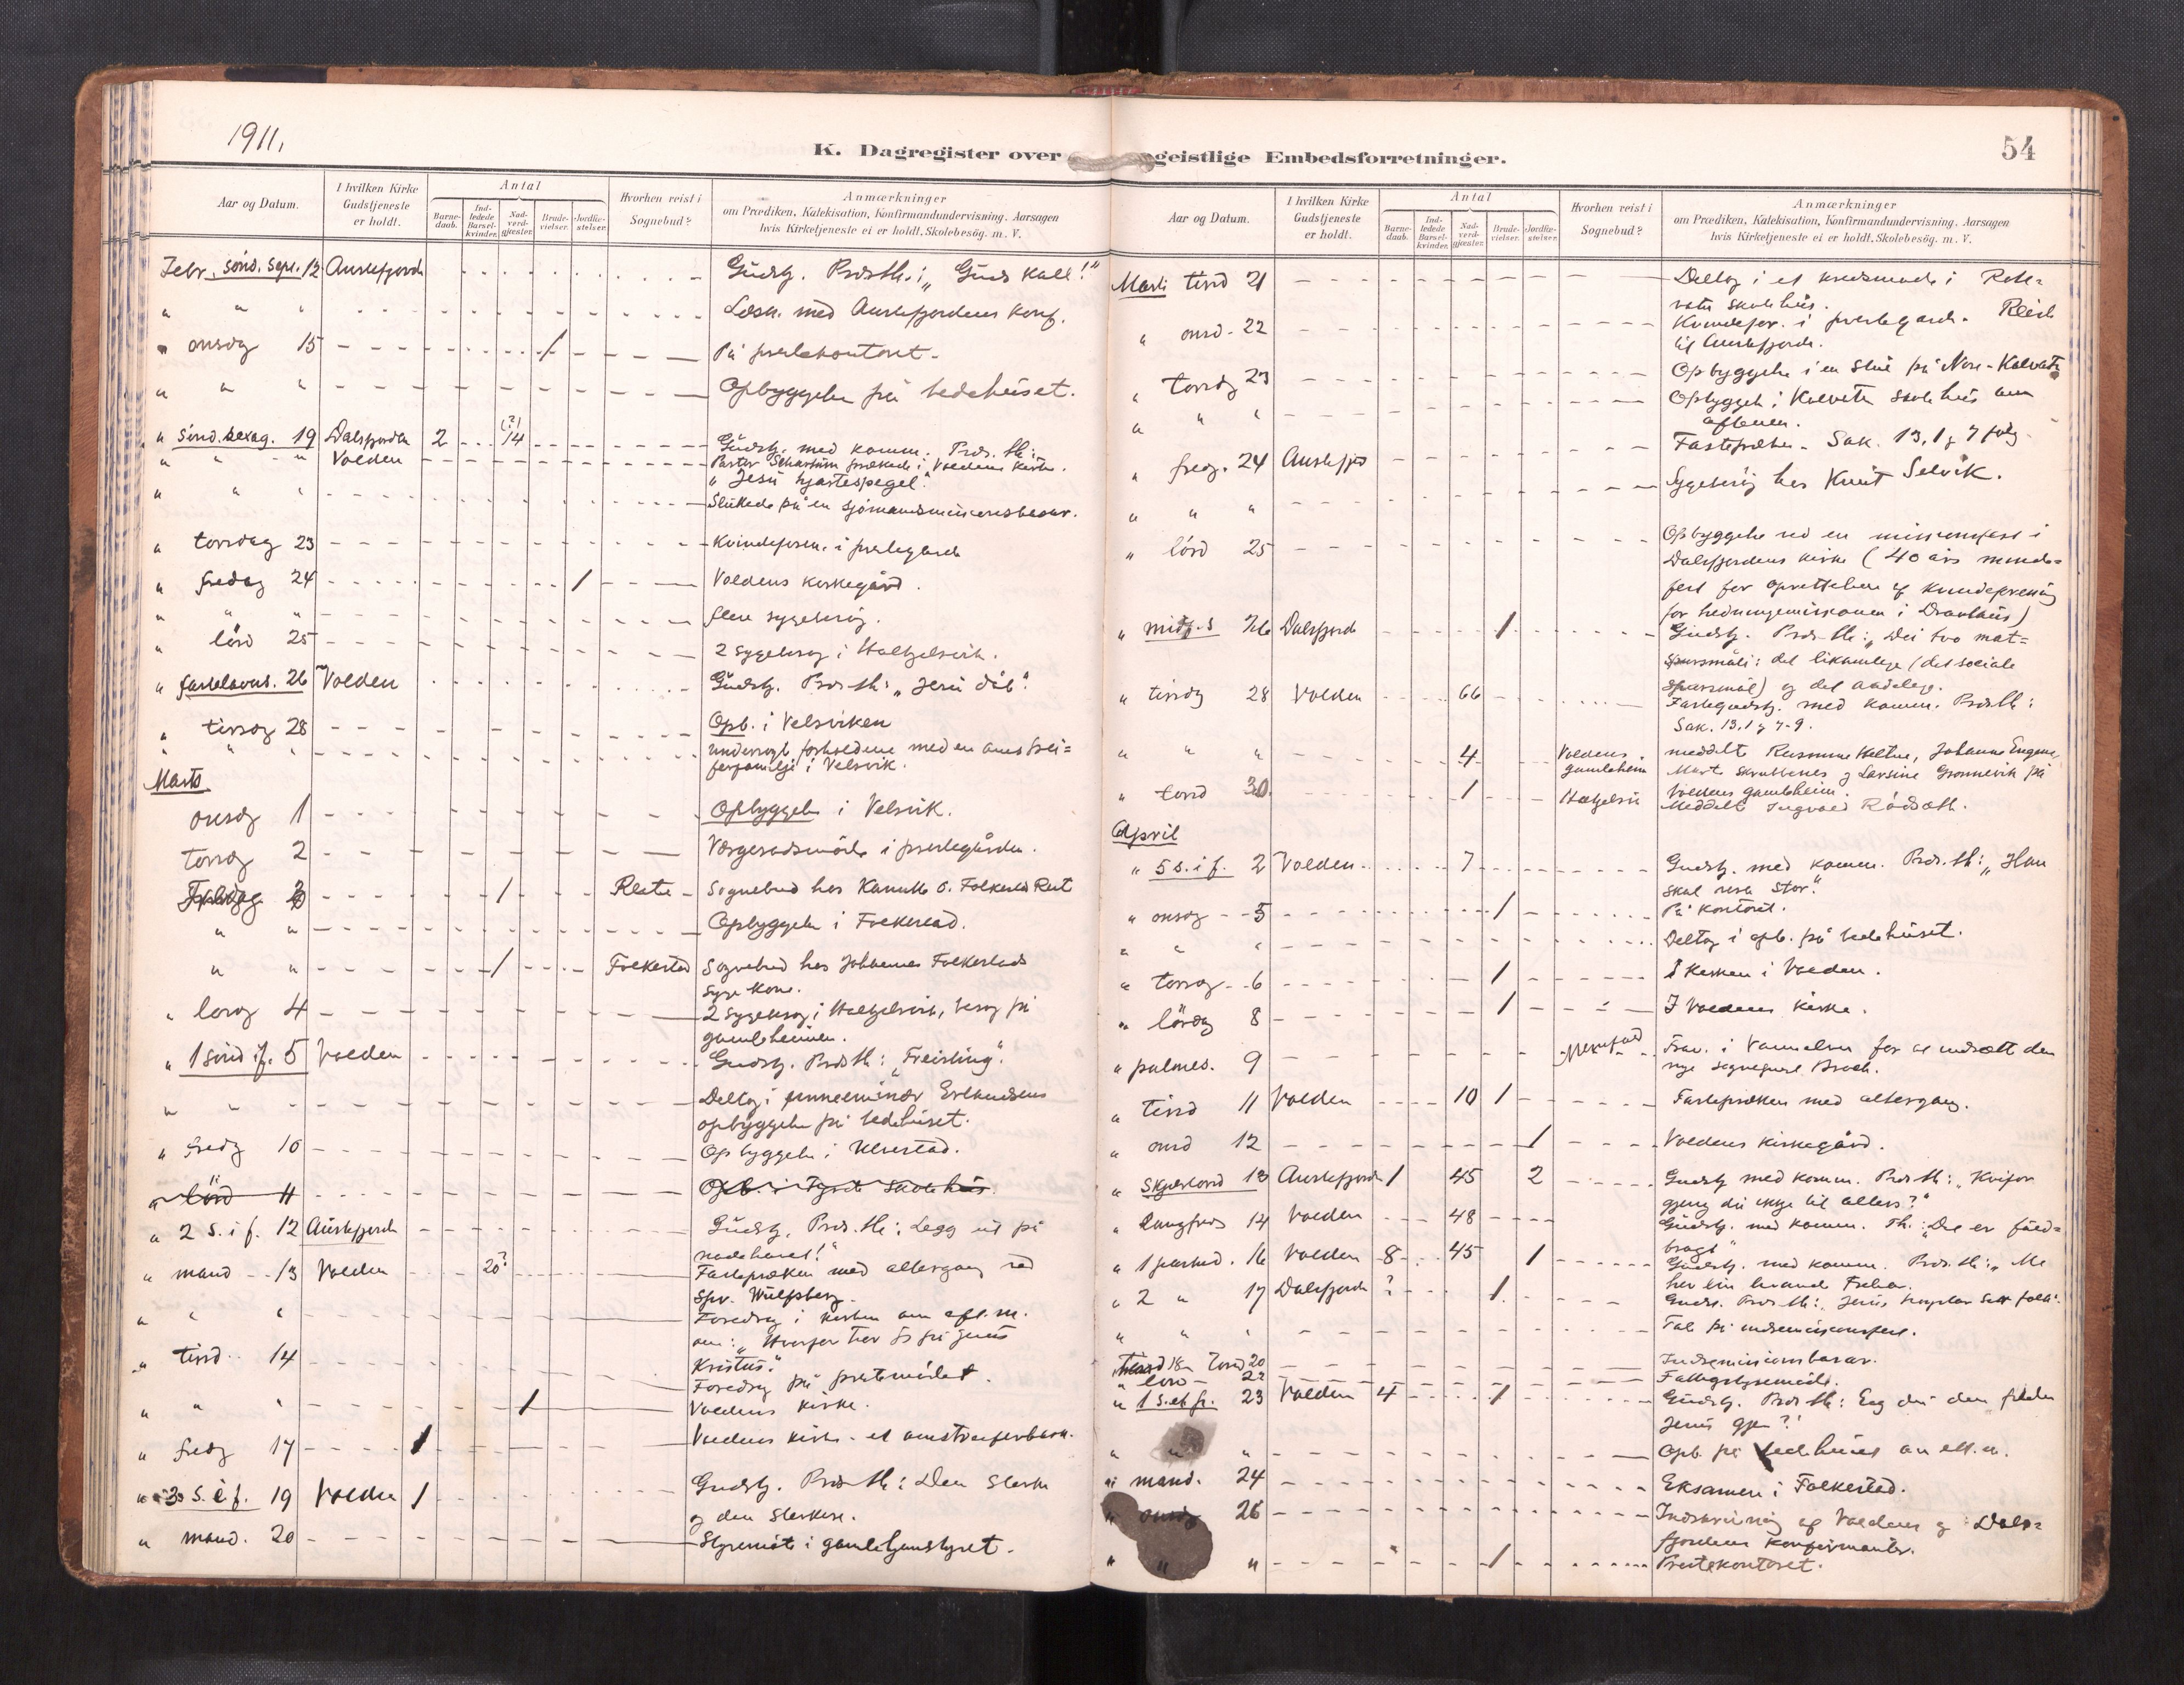 1911.
K. Dagregister over geistlige Embedsforretninger.
54
Aar og Datum.
I hvilken Kirke Gudstjeneste er holdt.
Antal
Barne-daab.
Ind-ledede Barsel-kvinder.
Nad-verd-gjester.
Brude-vielser.
Jordfæ-stelser.
Hvorhen reist i Sognebud?
Anmærkninger
om Prædiken, Katekisation, Konfirmandundervisning. Aarsagen
hvis Kirketjeneste ei er holdt. Skolebesög. m. V.
Febr. sönd. sept. 12 Austefjord Gudstj. Præs. th.: "Guds kall!"
" " " Læsn. med Austefjordens konf.
" onsdg 15 / På prestekontoret.
" " " Opbyggelse på bedehuset.
" Sönd. sexag. 19 Dalsfjorden 2 (?) 14 Gudstj. med komm. Præs. th:
" " " Volden Pastor prækede i Voldens kirke.
"Jesu hjartespegel".
" " " Sluttede på en sjömandsmissionsbasar.
" torsdag 23 Kvindeforen. i prestegard
" fredag 24 1 Voldens kirkegård.
" " " flere sygebesög.
" lörd 25 2 sygebesög i
" fastelavns. 26 Volden Gudstj. Præs. th: "Jesu dåb".
" tirsdg 28 Opb. i Velsviken
" " " undersögt forholdene med en omstrei=
ferfamilje i Velsvik.
Marts
onsdg 1 Opbyggelse i Velsvik.
Torsdg 2 Vergerådsmöde i prestegården.
Fredag 3 / Sognebud hos Folkestad
" " Opbyggelse i Folkestad.
" " / Folkestad Sognebud hos Johannes Folkestads
syge kone.
" lördg 4 2 sygebesög i besög på
gamleheimen.
" 1 sönd i f. 5 Volden Gudstj. Præs th: "Freisting".
" " " Deltog i
opbyggelse på bedehuset.
" fredg 10 Opbyggelse i Ulvestad.
" lörd 11 Opb. i skolehus.
" 2 s. i f. 12 Austefjord Gudstj. Præs. th: Legg ut på
nadehavet!"
" mand 13 Volden 20? Fastepræken med altergang ved
Spr. Wulfsberg.
" " " Foredrag i kirken om eft.m.
om: "Hvorfor tror jeg på Jesus
Kristus".
" tirsd. 14 Foredrag på prestemödet.
" " " 1 Voldens kirke.
" fredg 17 1 Voldens kirke - et omstreiferbarn.
" 3 s. i f. 19 Volden 1 Gudstj. Præs th: Den sterke
og den sterkere.
" mand. 20 Styremöte i
Aar og Datum.
I hvilken Kirke Gudstjeneste er holdt.
Antal
Barne-daab.
Ind-ledede Barsel-kvinder.
Nad-verd-gjester.
Brude-vielser.
Jordfæ-stelser.
Hvorhen reist i Sognebud?
Anmærkninger
om Prædiken, Katekisation, Konfirmandundervisning. Aarsagen
hvis Kirketjeneste ei er holdt. Skolebesög. m. V.
Marts tirsd 21 Deltog i et kredsmöde i
skolehus.
" onsd. 22 Kvindefor. i prestegard. Reiste
til Austefjord.
" torsdg 23 Opbyggelse i en stue på Nore-Kalvatn
" " " Opbyggelse i Kalvatn skolehus om
aftenen.
" fredg. 24 Austefjord Fastepræken. Sak. 13,1 & 7 følg.
" " " Sygebesög hos Knut Selvik.
" lörd 25 Opbyggelse ved en missionsfest i
Dalsfjordens kirke (40 års minde=
fest for oprettelsen af kvindeforening
for hedningemissionen i Dravlaus)
" midf. s 26 Dalsfjord 1 Gudstj. Præs. th: "Dei tvo mat=
spursmåli: det likamlege (det sociale
spursmål) og det åndelege.
" tirsdg 28 Volden 66 Fastegudstj. med komm. Præs. th:
Sak. 13,1 & 7-9.
" " " 4 Voldens gamleheim meddelt Johanne
Marte og Larsine på
Voldens gamleheim.
" torsd 30. 1 Meddelt Ingvald
April
" 5 s. i f. 2 Volden 7 Gudstj. med komm. Præs. th: "Han
skal vera stor".
" onsdg 5 1 På kontoret.
" " " Deltog i opb. på bedehuset.
" torsdg 6 1 I kirken i Volden.
" lördg 8 1 I Voldens kirke.
" palmes. 9 Frav. i Vannelven for at indsætte den
nye sogneprest Broch.
" Tirsd 11 Volden 10 1 Fastepræken med altergang.
" onsd 12 1 Voldens kirkegård.
" Skjærtorsd 13 Austefjord 1 45 2 Gudstj. med komm. Præs. th: "Kvifor
gjeng du ikkje til alters?"
" Langfreds 14 Volden 48 Gudstj. med komm. Th: "Det er fuld=
bragt"
" 1 påsked. 16 Volden 8 45 1 Gudstj. med komm. Præs. th: "Me
"
" 2 " 17 Dalsfjord ? 1 Gudst. Præs. th: "Jesus folk".
" " " Tale på indremissionsfest.
Tirsd 18 Torsd 20 Indremissionsbasar.
" lörd 22
" 1 s. eft p. 23 Volden 4 1 Gudstj. Præs. th:
Jesus gjev?"
" " " Opb. på bedehuset om eft.m.
" mand. 24 Eksamen i Folkestad.
" onsdg 26 Indskrivning af Voldens og Dals=
fjordens konfirmanter.
" " " 1 Prestekontoret.